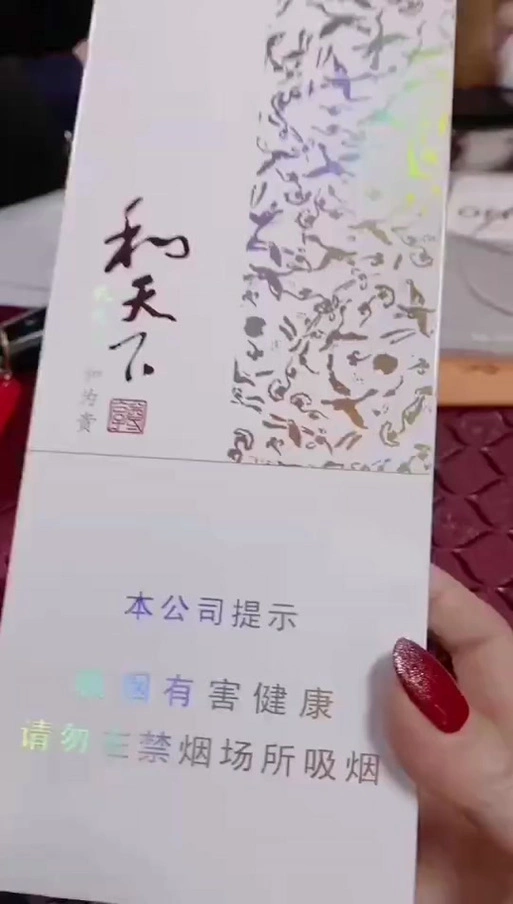 和天下
和为贵
本公司提示
吸烟有害健康
请勿在禁烟场所吸烟